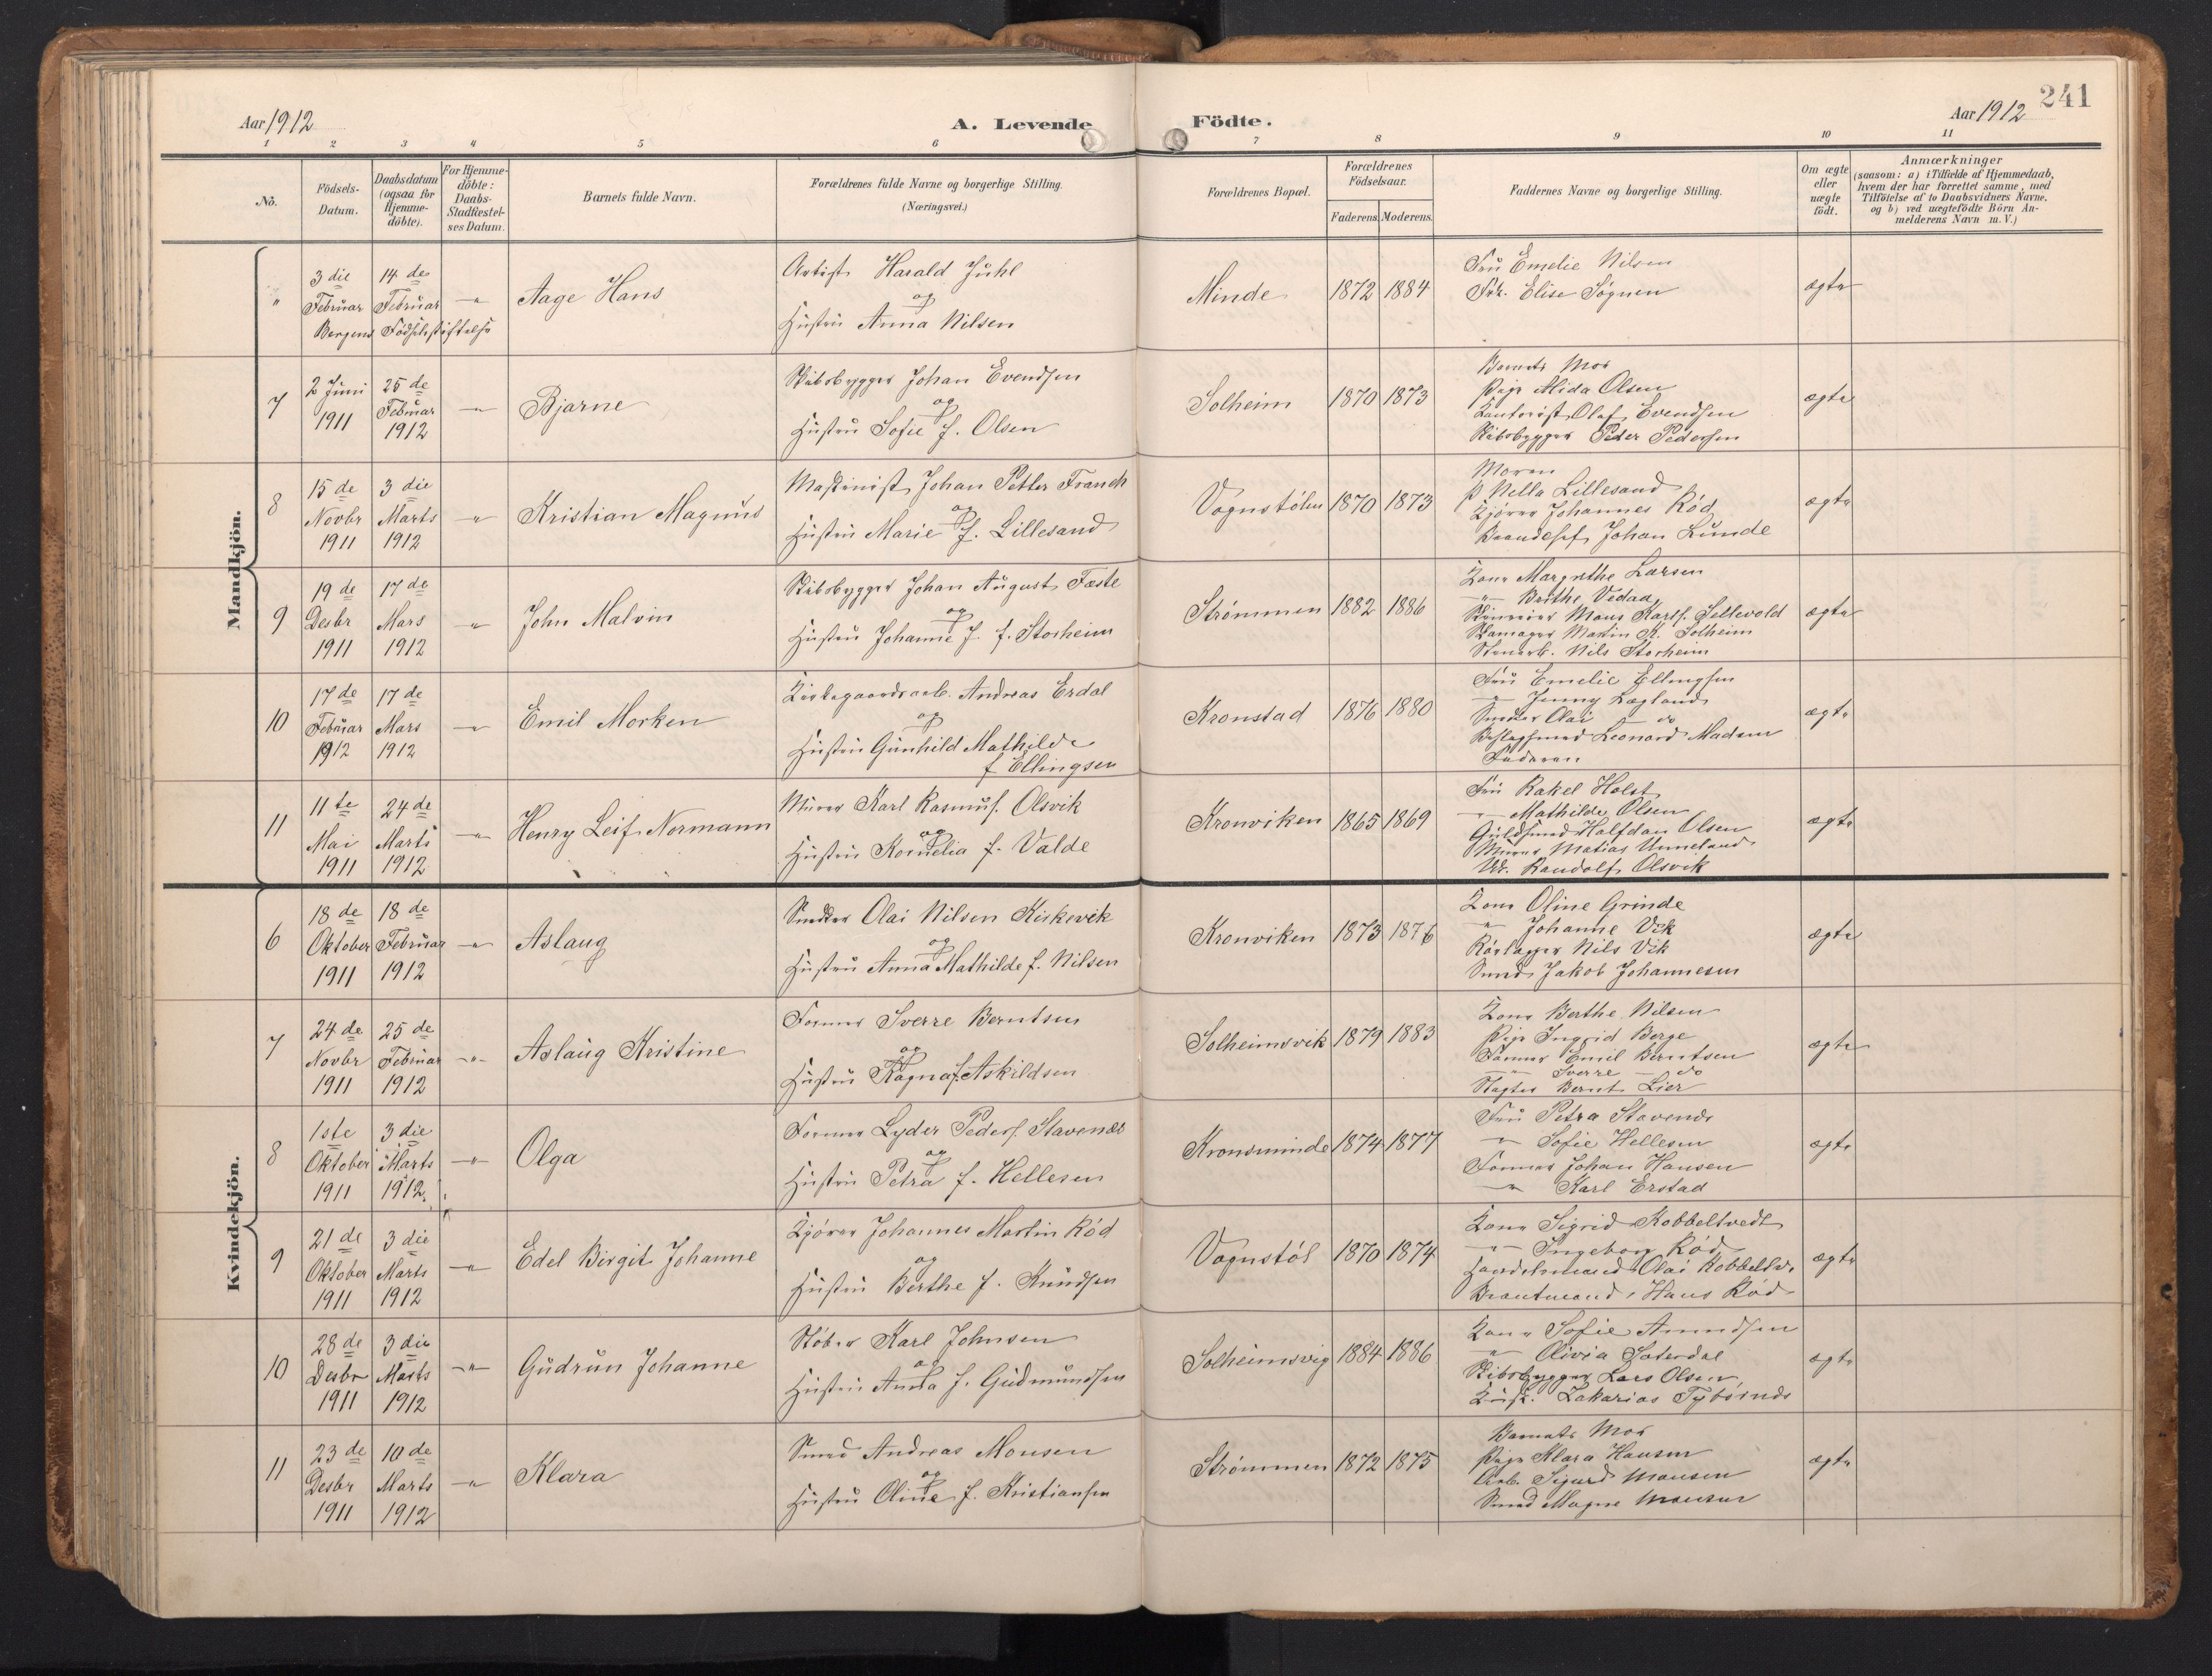 241
Aar 1912
A. Levende Födte.
Aar 1912
1 2 3 4 5 6 7 8 9 10 11
No.
Födsels-Datum.
Daabsdatum (ogsaa for Hjemme-döbte).
For Hjemme-döbte: Daabs-Stadfæstel-ses Datum.
Barnets fulde Navn.
Forældrenes fulde Navne og borgerlige Stilling.
(Næringsvei.)
Forældrenes Bopæl.
Forældrenes Födselsaar.
Faderens. Moderens.
Faddernes Navne og borgerlige Stilling.
Om ægte eller uægte födt.
Anmærkninger
(saasom: a) i Tilfælde af Hjemmedaab,
hvem der har forrettet samme, med
Tilföielse af to Daabsvidners Navne,
og b) ved uægtefödte Börn An-
melderens Navn m. V.)
Mandkjön.
" 3die Februar 14de Februar -"- Aage Hans
Bergens Fødselsstiftelse
Artist Harald Juhl
og
Hustru Anna Nilsen
Minde 1872 1884
Fru Emelie Nilsen
Frk. Elise Søgnen
ægte
7 2 Juni 1911 25de Februar 1912 -"- Bjarne
Skibsbygger Johan Evendsen
og
Hustru Sofie f. Olsen
Solheim 1870 1873
Barnets Mor
Pige Alida Olsen
Kontorist Olaf Evendsen
Skibsbygger Peder Pedersen
ægte
8 15de Novbr 1911 3die Marts 1912 -"- Kristian Magnus
Maskinist Johan Petter Franck
og
Hustru Marie f. Lillesand
Vognstølen 1870 1873
Moren
P. Nella Lillesand
Kjører Johannes Rød
Johan Lunde
ægte
9 19de Desbr 1911 17de Mars 1912 -"- John Malvin
Skibsbygger Johan August Fæste
og
Hustru Johanne J. f. Storheim
Strømmen 1882 1886
Kone Margrethe Larsen
-"- Berthe Vedaa
Mons Karls. Sellevold
Skomager Martin K. Solheim
Stenarb. Nils Storheim
ægte
10 17de Februar 1912 17de Mars 1912 -"- Emil Morken
Kirkegaardsarb. Andreas Erdal
og
Hustru Gunhild Mathilde
f Ellingsen
Kronstad 1876 1880
Fru Emelie Ellingsen
-"- Jenny Lægland
Smed Olai do
Beslagsmed Leonard Madsen
Faderen
ægte
11 11te Mai 1911 24de Marts 1912 -"- Henry Leif Normann
Murer Karl Rasmus. Olsvik
og
Hustru Kornelia f. Valde
Kronviken 1865 1869
Fru Rakel Holst
-"- Mathilde Olsen
Guldsmed Halfdan Olsen
Murer Matias Unneland
Randolf Olsvik
ægte
Kvindekjön.
6 18de Oktober 1911 18de Februar 1912 -"- Aslaug
Smed Olai Nilsen Kirkevik
og
Hustru Anna Mathilde f. Nilsen
Kronviken 1873 1876
Kone Oline Grinde
-"- Johanne Vik
Rørlægger Nils Vik
Smed Jakob Johannesen
ægte
7 24de Novbr 1911 25de Februar 1912 -"- Aslaug Kristine
Former Sverre Berntsen
og
Hustru Ragna f. Askildsen
Solheimsvik 1879 1883
Kone Berthe Nilsen
Pige Ingrid Berge
Former Emil Berntsen
-"- Sverre do
Slagter Bernt Lier
ægte
8 1ste Oktober 1911 3die Marts 1912 -"- Olga
Former Lyder Peders. Stavenes
og
Hustru Petra f. Hellesen
Kronsminde 1874 1877
Fru Petra Stavenes
-"- Sofie Hellesen
Former Johan Hansen
-"- Karl Erstad
ægte
9 21de Oktober 1911 3die Marts 1912 -"- Edel Birgit Johanne
Kjører Johannes Martin Rød
og
Hustru Berthe f. Knudsen
Vognstøl 1870 1874
Kone Sigrid Kobbeltvedt
-"- Ingeborg Rød
Handelsmand Olai Kobbeltv.
Hans Rød
ægte
10 28de Desbr 1911 3die Marts 1912 -"- Gudrun Johanne
Støber Karl Johnsen
og
Hustru Anna f. Gudmundsen
Solheimsvig 1884 1886
Kone Sofie Amundsen
-"- Olivia Saterdal
Skibsbygger Lars Olsen
Zakarias
ægte
11 23de Desbr 1911 10de Marts 1912 -"- Klara
Smed Andreas Monsen
og
Hustru Oline f. Kristiansen
Strømmen 1872 1875
Barnets Mor
Pige Klara Hansen
Arb. Sigurd Monsen
Smed Magne Monsen
ægte